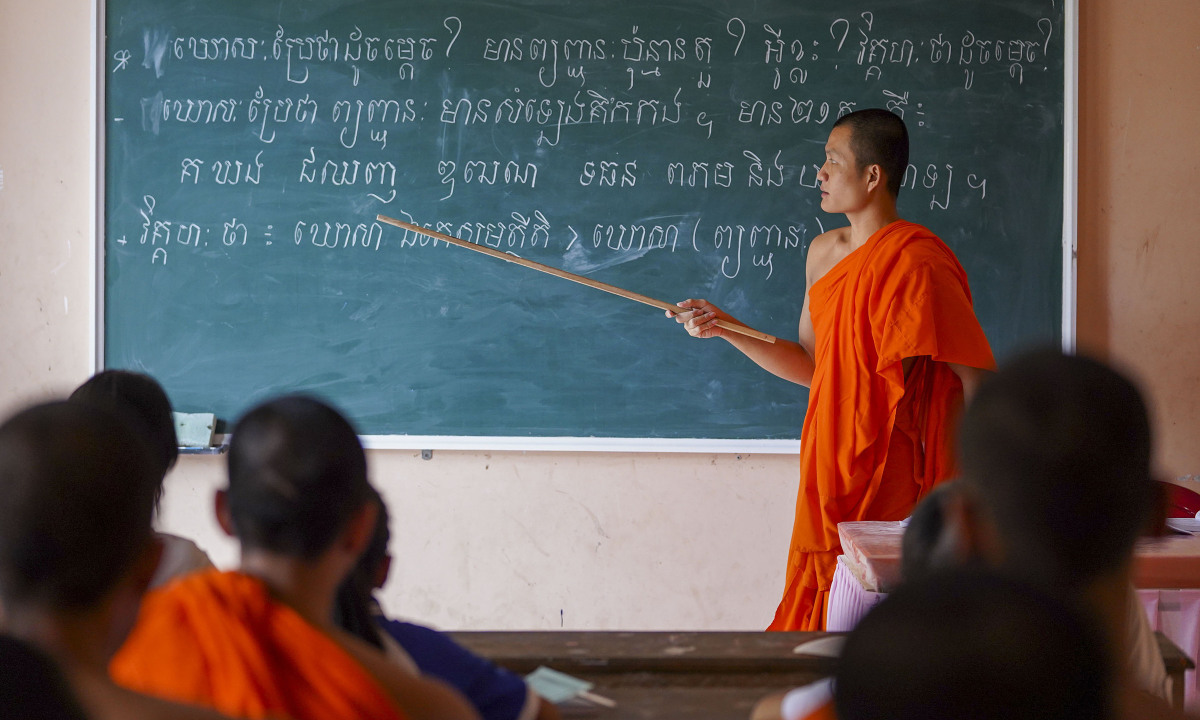 * ឃោសៈប្រែថាដូចម្ដេច? មានព្យញ្ជនៈប៉ុន្មានតួ? អ្វីខ្លះ? វិគ្គហៈថាដូចម្ដេច?
- ឃោសៈប្រែថា ព្យញ្ជនៈ មានសំឡេងគឹកកង ។ មាន ២១តួ គឺៈ
គ ឃ ង ជ ឈ ញ ឌ ឍ ណ ទ ធ ន ព ភ ម និង
+ វិគ្គហៈ ថា ៖ ឃោសា ឯតេសមត្ថីតិ > ឃោសា (ព្យញ្ជនៈ)